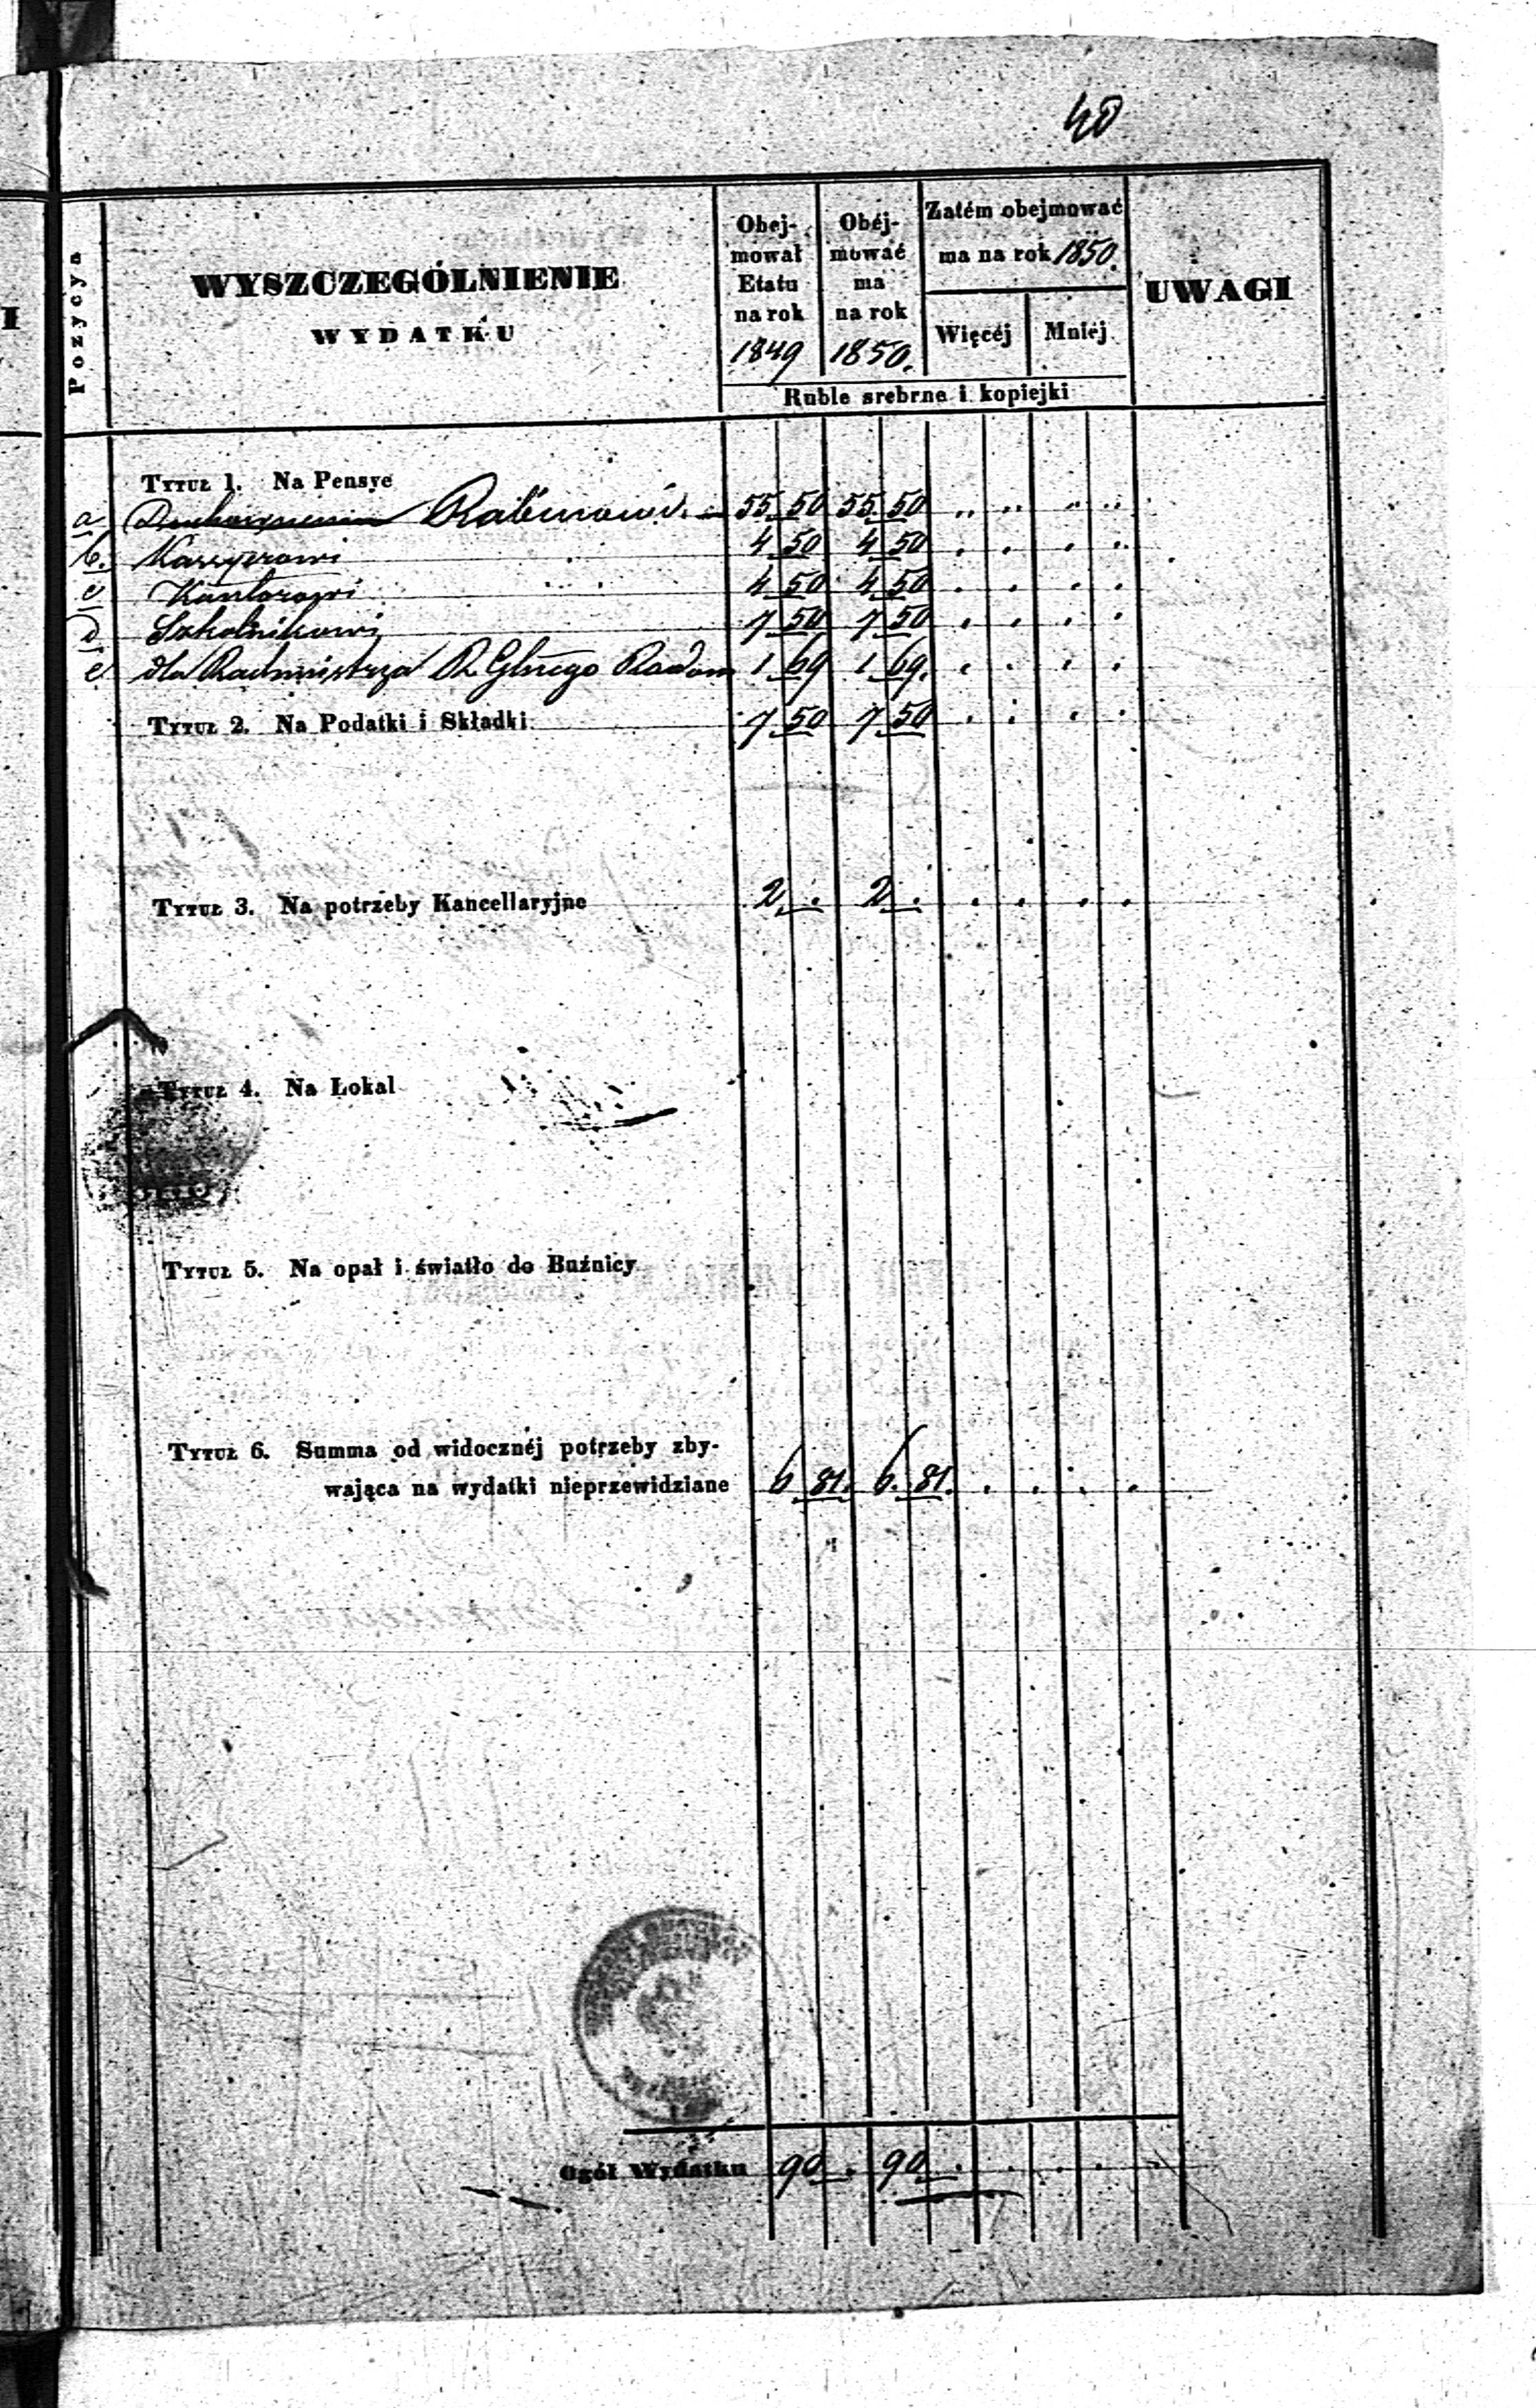 40
Pozycya
WYSZCZEGÓLNIENIE
WYDATKU
Obej-
mował
Etatu
na rok
1849
Obéj-
mować
ma
na rok
1850.
Zatém obejmować
ma na rok 1850.
Więcéj
Mniéj
UWAGI
Ruble srebrne i kopiejki
Tytuł 1. Na Pensye
a Rabinowi 55 50 55 50
b. Kassyerowi 4 50 4 50
c Kantorowi 4 50 4 50
d Szkolnikowi 7 50 7 50
e dla Rachmistrza R. Głnego Radom 1 69 1 69.
Tytuł 2. Na Podatki i Składki 7 50 7 50
Tytuł 3. Na potrzeby Kancellaryjne 2 . 2 .
Tytuł 4. Na Lokal
Tytuł 5. Na opał i światło do Buźnicy
Tytuł 6. Summa od widocznéj potrzeby zby-
wająca na wydatki nieprzewidziane 6 81. 6. 81.
Ogół Wydatku 90 . 90 .